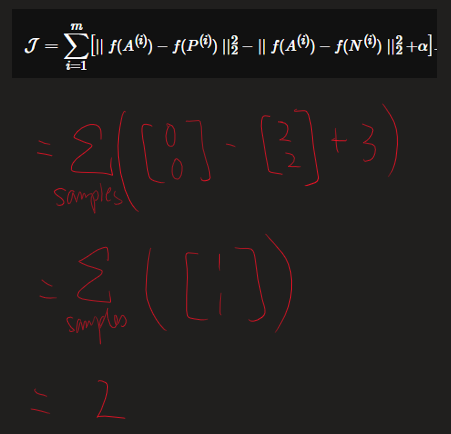 𝒥 = ∑_{i=1}^{m} [|| f(A^{(i)}) − f(P^{(i)}) ||_2^2 − || f(A^{(i)}) − f(N^{(i)}) ||_2^2 +α].
= ∑_{samples} ( [0 0] - [2 2] + 3 )
= ∑_{samples} ( [1 1] )
= 2